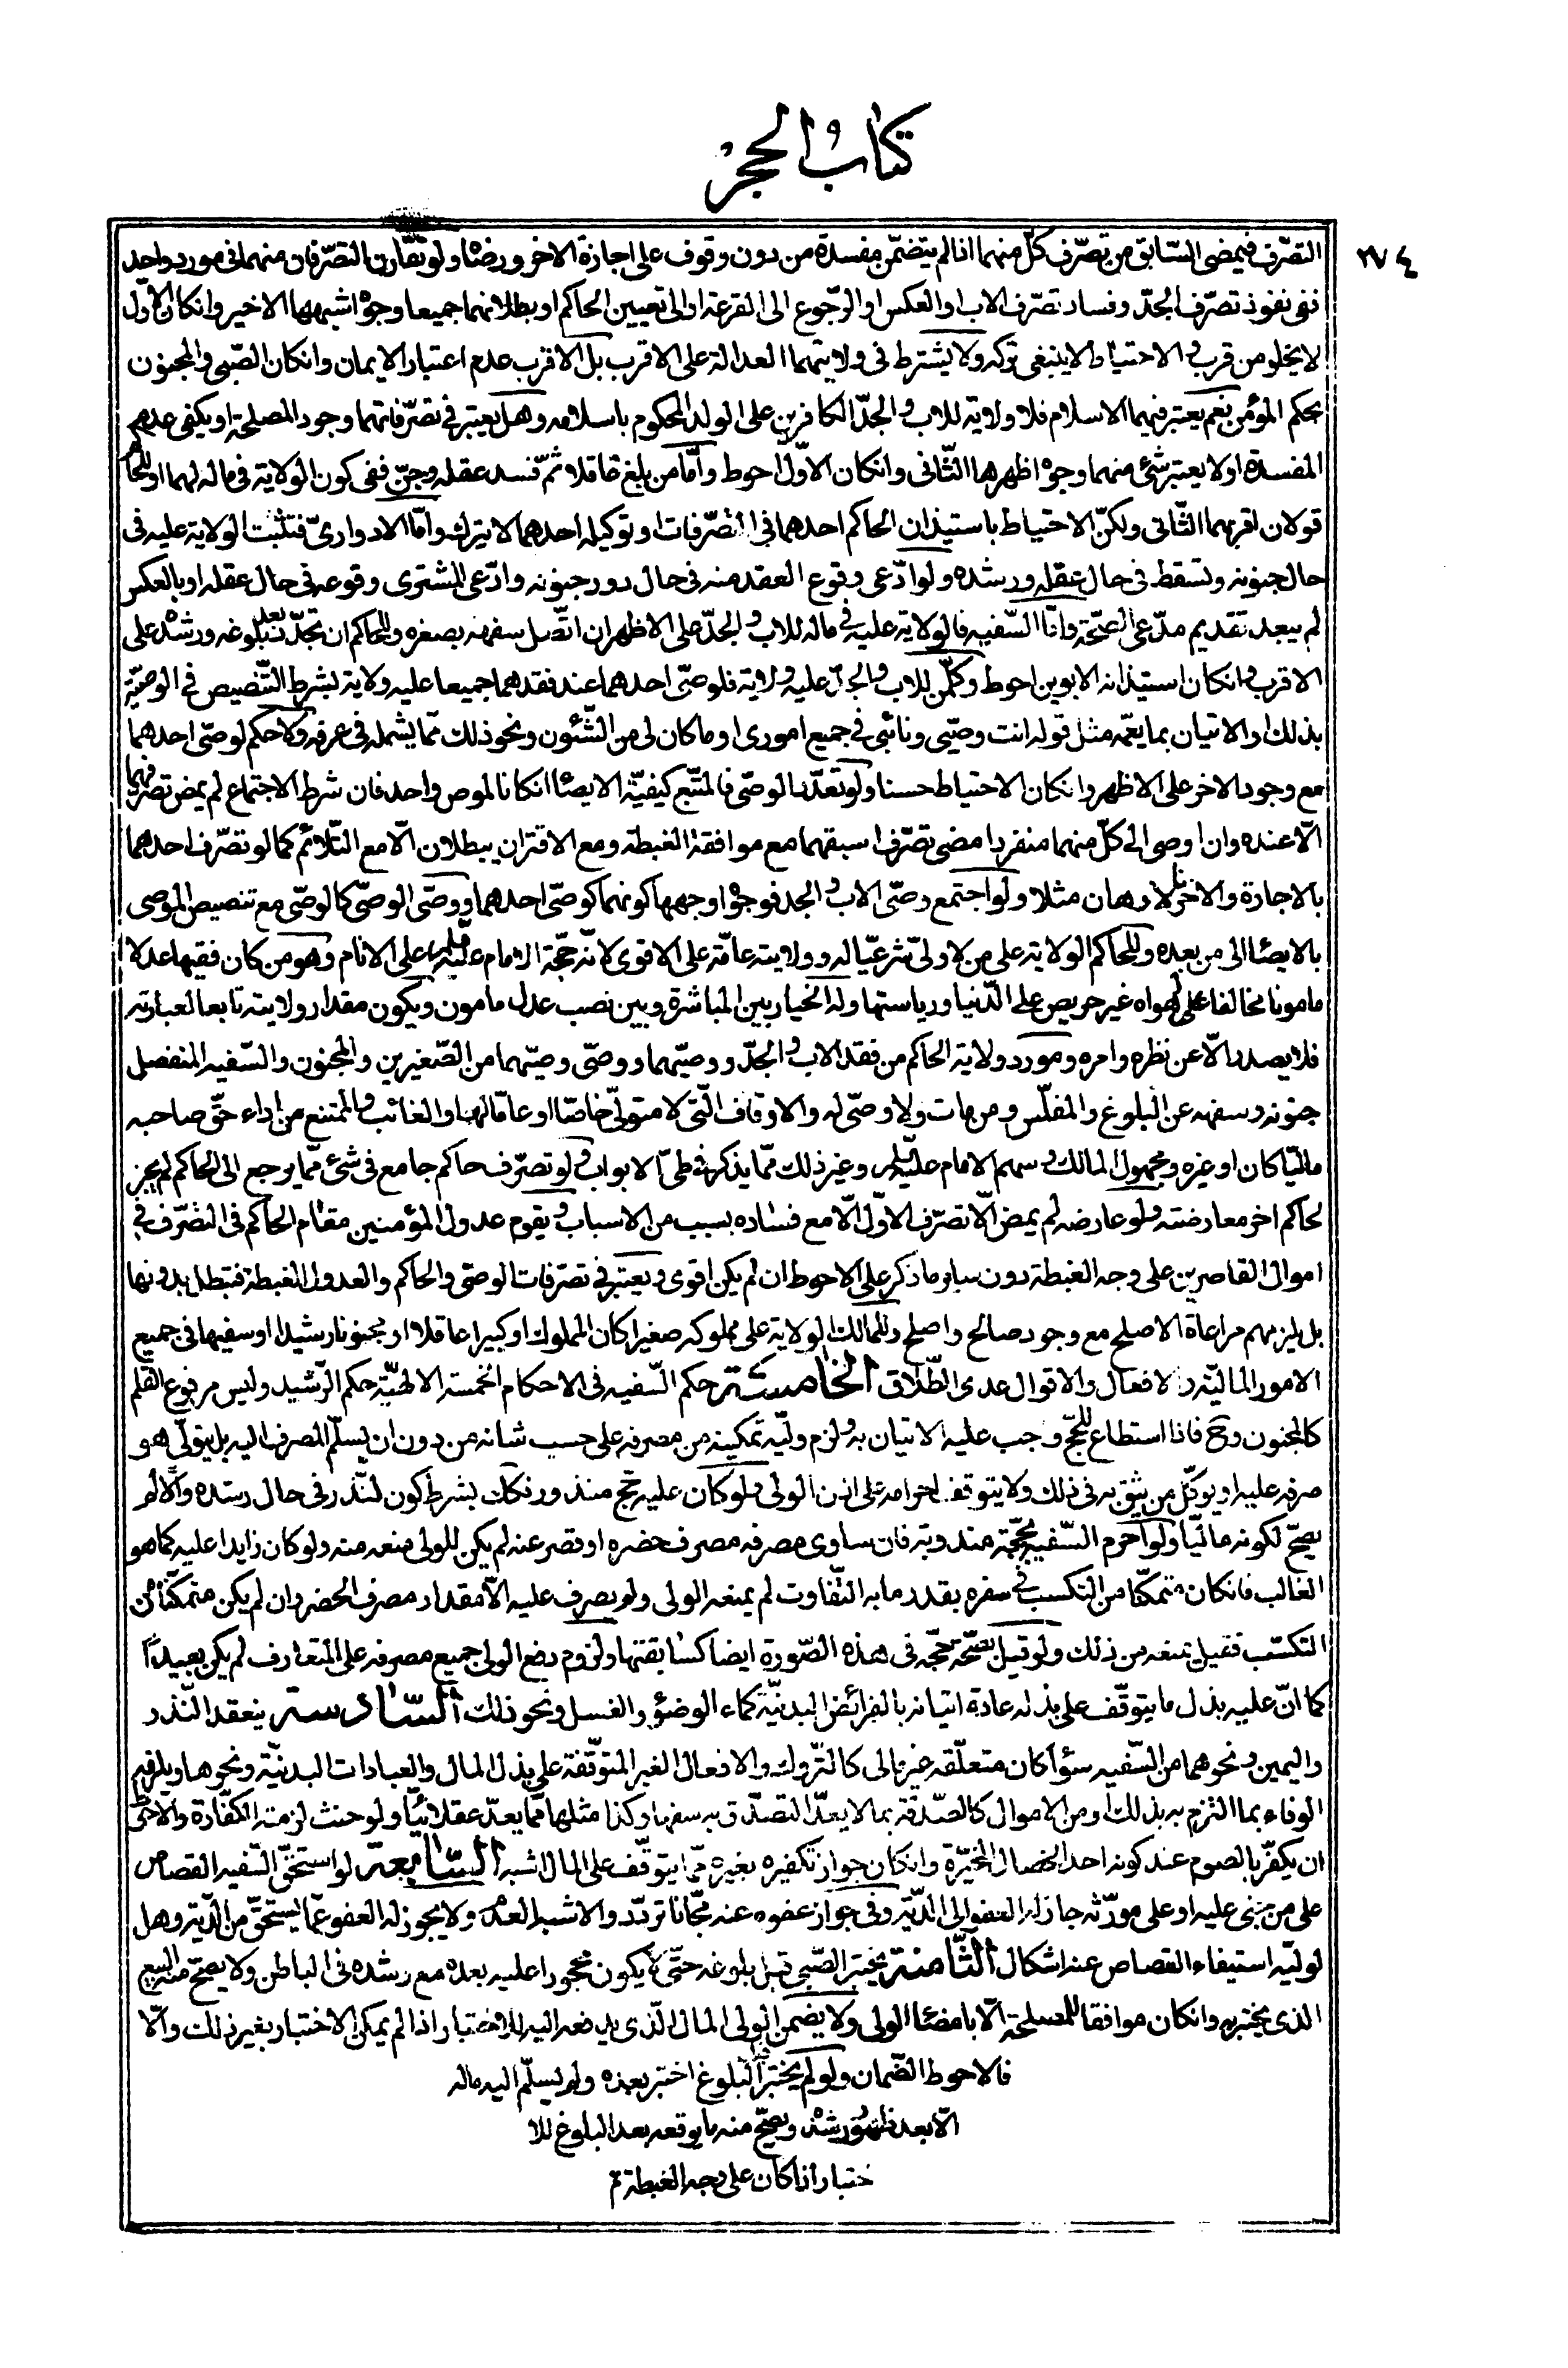 كتاب الحجر
٢٧٤
التصرّف فيمضى السّابق من تصرّف كلّ منهما اذا لم يتضمّن مفسدة من دون وقوف على اجازة الاخر ورضاه ولو تقارن التصرّفان منهما فى مورد واحد
ففى نفوذ تصرّف الجدّ وفساد تصرّف الاب او العكس او الرّجوع الى القرعة او الى تعيين الحاكم او بطلانهما جميعا وجوه اشبهها الاخير وانكان الاوّل
لا يخلو من قرب والاحتياط لا ينبغى تركه ولا يشترط فى ولايتهما العدالة على الاقرب بل الاقرب عدم اعتبار الايمان وانكان الصّبى والمجنون
بحكم المؤمن نعم يعتبر فيهما الاسلام فلا ولاية للاب والجدّ الكافرين على الولد المحكوم باسلامه وهل يعتبر فى تصرّفاتهما وجود المصلحة او يكفى عدم
المفسدة او لا يعتبر شئ منهما وجوه اظهرها الثّانى وانكان الاوّل احوط وامّا من بلغ عاقلا ثمّ فسد عقله وجنّ ففى كون الولاية فى ماله لهما او للحاكم
قولان اقربهما الثّانى ولكنّ الاحتياط باستيذان الحاكم احدهما فى التصرّفات او توكيله احدهما لا يترك وامّا الادوارىّ فتثبت الولاية عليه فى
حال جنونه وتسقط فى حال عقله ورشده ولو ادّعى وقوع العقد منه فى حال دور جنونه وادّعى المشترى وقوعه فى حال عقله او بالعكس
لم يبعد تقديم مدّعى الصحّة وامّا السّفيه فالولاية عليه فى ماله للاب والجدّ على الاظهر ان اتّصل سفهه بصغره وللحاكم ان تجدّد بعد بلوغه ورشده على
الاقرب وانكان استيذانه الابوين احوط وكلّ من للاب والجدّ عليه ولاية فلوصّى احدهما عند فقدهما جميعا عليه ولاية بشرط التّنصيص فى الوصيّة
بذلك او الاتيان بما يعمّه مثل قوله انت وصيّى ونائبى فى جميع امورى او ما كان لى من الشّئون ونحو ذلك ممّا يشمله فى عرفه ولا حكم لوصّى احدهما
مع وجود الاخر على الاظهر وانكان الاحتياط حسنا ولو تعدّد الوصّى فالمتّبع كيفيّة الايصاء انكانا لموص واحد فان شرط الاجتماع لم يمض تصرّفهما
الّا عنده وان اوصى الى كلّ منهما منفردا مضى تصرّف اسبقهما مع موافقة الغبطة ومع الاقتران يبطلان الّا مع التّلائم كما لو تصرّف احدهما
بالاجارة والاخر بالارهان مثلا ولو اجتمع وصّى الاب والجد فوجوه اوجهها كونهما كوصّى احدهما ووصّى الوصّى كالوصّى مع تنصيص الموصى
بالايصاء الى من بعده وللحاكم الولاية على من لا ولىّ شرعيّا له وولايته عامّة على الاقوى لانّه حجّة الامام عليه السلام على الانام وهو من كان فقيها عدلا
مامونا مخالفا على لهواه غير حريص على الدّنيا ورياستها وله الخيار بين المباشرة وبين نصب عدل مامون ويكون مقدار ولايته تابعا لعبارته
فلا يصدر الّا عن نظره وامره ومورد ولاية الحاكم من فقد الاب والجدّ ووصيّهما ووصّى وصيّهما من الصّغيرين والمجنون والسّفيه المنفصل
جنونه وسفهه عن البلوغ والمفلّس ومن مات ولا وصّى له والاوقاف الّتى لا متولّى خاصّا او عامّا لها والغائب والممتنع من اداء حقّ صاحبه
ماليّا كان او غيره ومجهول المالك وسهم الامام عليه السلام وغير ذلك ممّا يذكر فى طىّ الابواب ولو تصرّف حاكم جامع فى شئ ممّا يرجع الى الحاكم لم يجز
لحاكم اخر معارضته ولو عارضه لم يمض الّا تصرّف الاوّل الّا مع فساده بسبب من الاسباب ويقوم عدول المؤمنين مقام الحاكم فى التصّرف فى
اموال القاصرين على وجه الغبطة دون ساير ما ذكر على الاحوط ان لم يكن اقوى ويعتبر فى تصرّفات الوصّى والحاكم والعدول الغبطة فتبطل بدونها
بل يلزمهم مراعاة الاصلح مع وجود صالح واصلح وللمالك الولاية على مملوكه صغيرا كان المملوك او كبيرا عاقلا او مجنونا رشيدا او سفيها فى جميع
الامور الماليّة والافعال والاقوال عدى الطّلاق الخامسة حكم السّفيه فى الاحكام الخمسة الالهيّة حكم الرّشيد وليس مرفوع القلم
كالمجنون وح فاذا استطاع للحجّ وجب عليه الاتيان به ولزم وليّه تمكينه من مصرفه على حسب شانه من دون ان يسلّم المصرف اليه بل يتولّى هو
صرفه عليه او يوكّل من يثق به فى ذلك ولا يتوقف احرامه على اذن الولى ولو كان عليه حجّ منذور فكك بشرط كون النّذر فى حال رشده والّا لم
يصحّ لكونه ماليّا ولو احرم السّفيه بحجّة مندوبة فان ساوى مصرفه مصرف حضره او قصر عنه لم يكن للولى منعه منه ولو كان زايدا عليه كما هو
الغالب فانكان متمكّنا من التكسب فى سفره بقدر ما به التّفاوت لم يمنعه الولى ولو بصرف عليه الّا مقدار مصرف الحضر وان لم يكن متمكّنا من
التكسّب فقيل يمنعه من ذلك ولو قيل بصحّة حجّه فى هذه الصّورة ايضا كسابقتها ولزوم دفع الولى جميع مصرفه على المتعارف لم يكن بعيدا
كما انّ عليه بذل ما يتوقّف على بذله عادة اتيانه بالفرائض البدنيّة كماء الوضوء والغسل ونحو ذلك السّادسة ينعقد النّذر
واليمين ونحوهما من السّفيه سواء كان متعلّقه غير مالى كالتّروك والافعال الغير المتوقّفة على بذل المال والعبادات البدنيّة ونحوها ويلزمه
الوفاء بما التزم به بذلك او من الاموال كالصّدقة بما لا يعدّ التصدّق به سفها وكذا مثلها ممّا يعدّ عقلائيّا ولو حنث لزمته الكفّارة والاحوط
ان يكفّر بالصوم عند كونه احد الخصال المخيّرة وانكان جواز تكفيره بغيره ممّا يتوقّف على المال اشبه السّابعة لو استحقّ السّفيه القصاص
على من جنى عليه او على مورّثه جاز له العفو الى الدّية وفى جواز عفوه عنه مجّانا تردّد والاشبه العدم ولا يجوز له العفو عمّا يستحقّ من الدّية وهل
لوليّه استيفاء القصاص عنه اشكال الثّامنة يختبر الصّبى قبل بلوغه حتّى لا يكون محجورا عليه بعده مع رشده فى الباطن ولا يصحّ منه البيع
الذى يختبر به وانكان موافقا للمصلحة الّا بامضاء الولى ولا يضمن الولى المال الّذى يدفعه اليه للاختبار اذا لم يمكن الاختبار بغير ذلك والّا
فالاحوط الضّمان ولو لم يختبر قبل البلوغ اختبر بعده ولم يسلّم اليه ماله
الّا بعد ظهور رشده ويصحّ منه ما يوقعه بعد البلوغ للا
ختبار اذا كان على وجه الغبطة